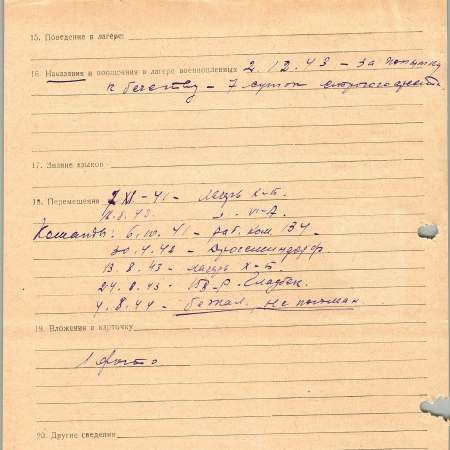 15. Поведение в лагере:
16. Наказания и поощрения в лагере военнопленных 2.12.43 – за попытку
к бегству – 7 суток строгого ареста
17. Знание языков
18. Перемещения XI – 41 – Лагерь X-Б.
8.43. – " – VI-А.
Команды: 6.10.41 – раб. ком. 134.
30.4.42 – Дюссельдорф
13.8.43 – лагерь X-Б.
24.8.43 – Гладбек.
4.8.44 – бежал, не пойман
19. Вложения в карточку
1 фото
20. Другие сведения